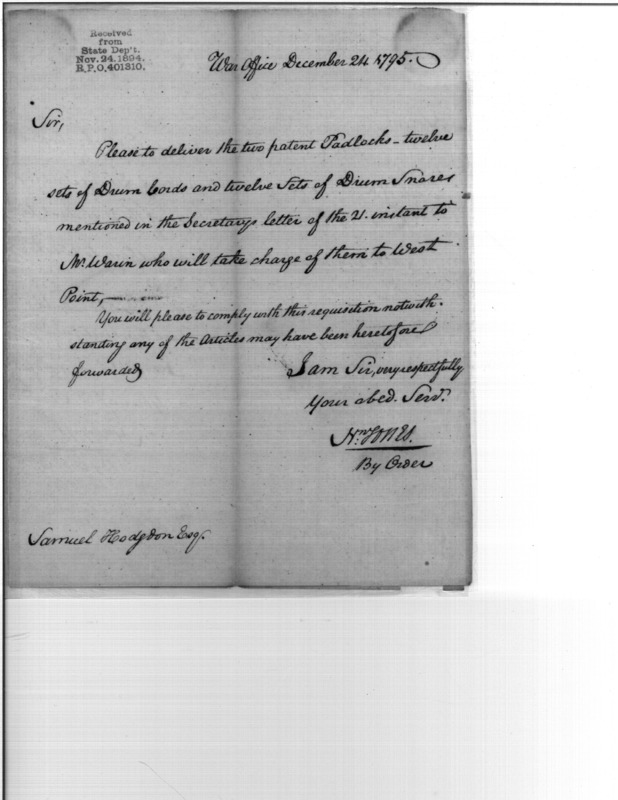 Received
from
State Dep't.
Nov. 24. 1894.
R.P.O. 401310.
War Office December 24 1795.
Sir,
Please to deliver the two patent Padlocks - twelve
sets of Drum Cords and twelve Sets of Drum Snares
mentioned in the Secretarys letter of the 21. instant to
Mr. Warin who will take charge of them to West
Point,
You will please to comply with this requisition notwith-
standing any of the Articles may have been heretofore
forwarded
I am Sir, very respectfully
Your obed. Servt.
Jones.
By Order
Samuel Hodgdon Esqr.